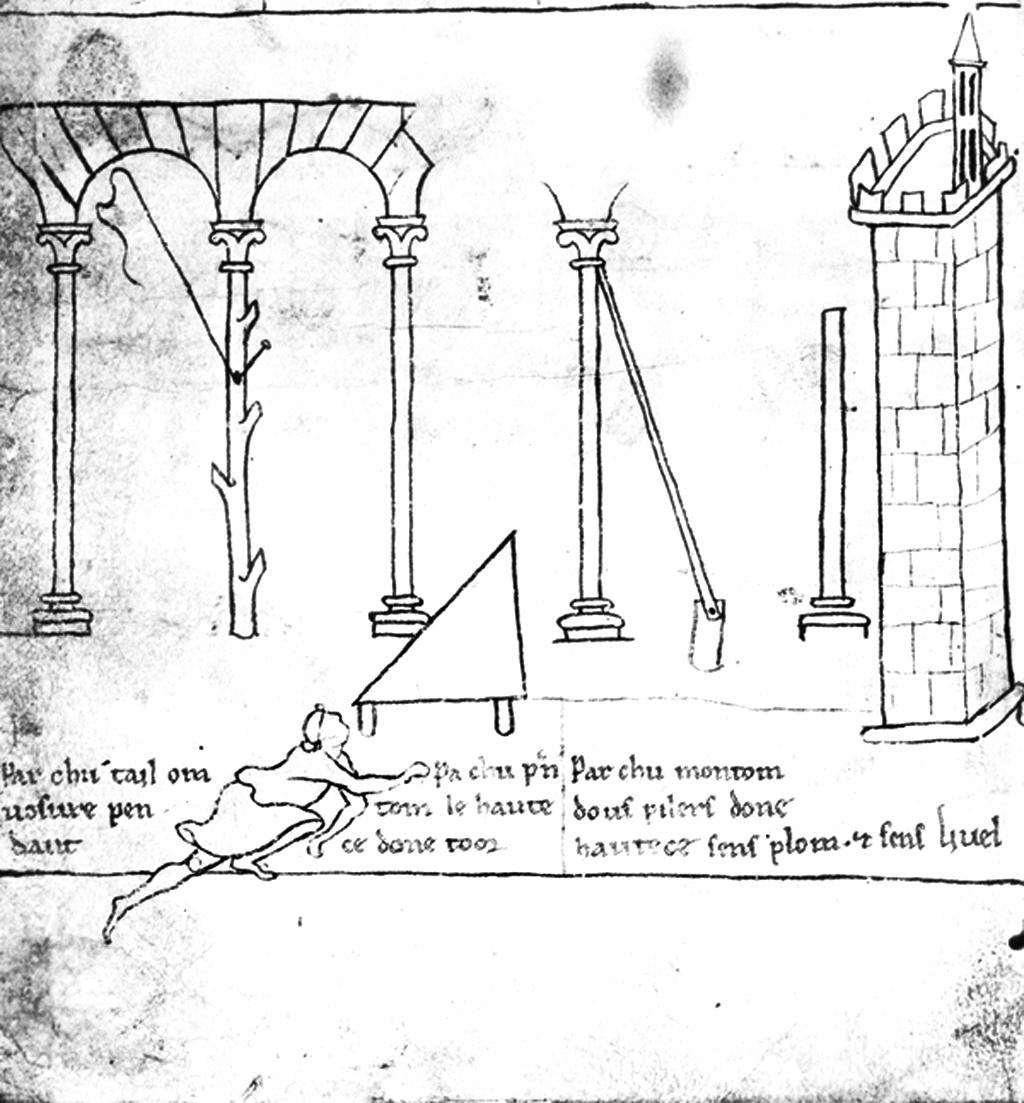 Par chu tail om
vosure pen
dant
Pa chu pñ
tom le haute
ce done toor
Par chu montom
dous pilers done
hautece sens plom . ⁊ sens livel